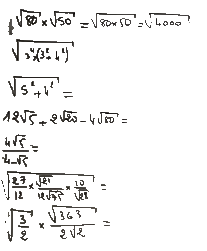 √80 × √50 = √80×50 = √4000
√3²×(3²+4²)
√5²+4² =
12√5 + 2√20 - 4√80 =
4√5/4-√5 =
√27/12 × √21/12√75 × 10/√28 =
√3/2 × √363/2√2 =